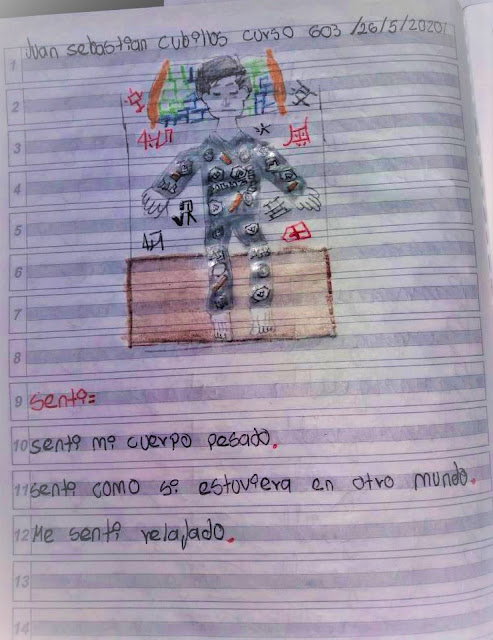 Juan sebastian cubillos curso 603 /26/5/2020/
1
2
3
4
5
6
7
8
9 senti=
10 senti mi cuerpo pesado.
11 senti como si estuviera en otro mundo.
12 Me senti relajado.
13
14